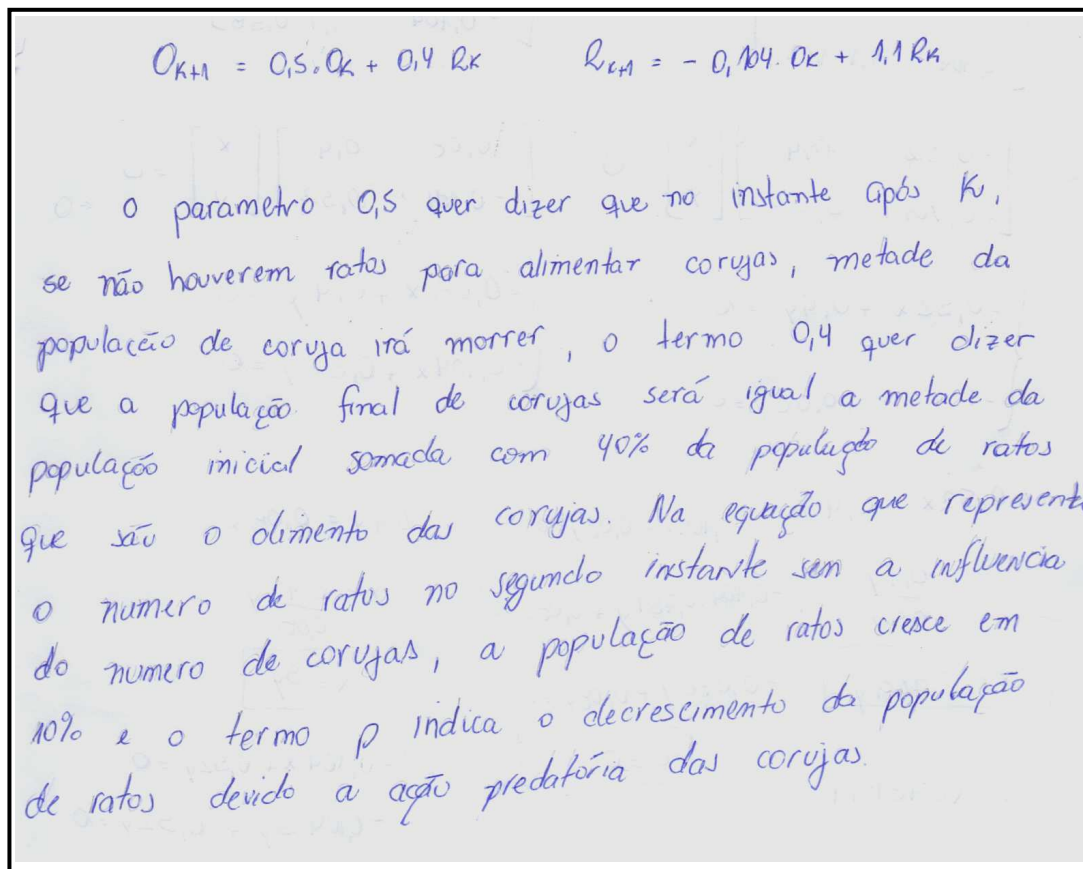 O_{K+1} = 0,5.O_K + 0,4 R_K R_{K+1} = - 0,104. O_K + 1,1 R_K
O parametro 0,5 quer dizer que no instante após K,
se não houverem ratos para alimentar corujas, metade da
população de coruja irá morrer, o termo 0,4 quer dizer
que a população final de corujas será igual a metade da
população inicial somada com 40% da população de ratos
que são o alimento das corujas. Na equação que represent
o numero de ratos no segundo instante sem a influencia
do numero de corujas, a população de ratos cresce em
10% e o termo p indica o decrescimento da população
de ratos devido a ação predatória das corujas.